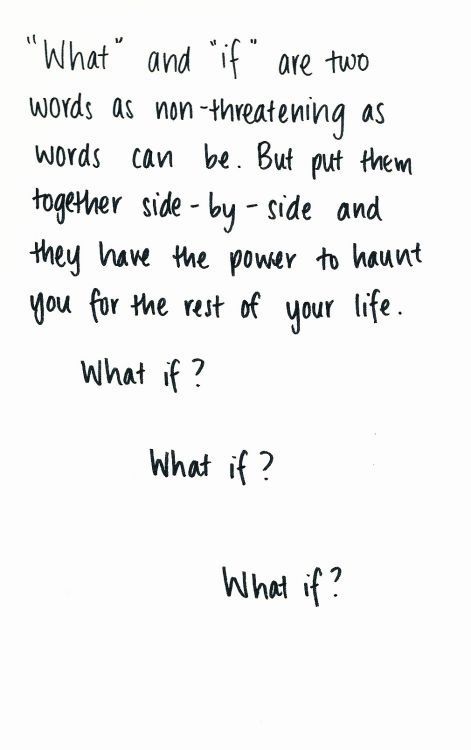 "What" and "if" are two
words as non-threatening as
words can be. But put them
together side-by-side and
they have the power to haunt
you for the rest of your life.
What if?
What if?
What if?